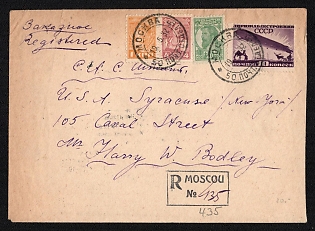 Заказное
Registered
МОСКВА
50 ПОЧТ
МОСКВА
50 ПОЧТ
ДИРИЖАБЛЕСТРОЕНИЕ
СССР
ПОЧТА 10 КОПЕЕК
U.S.A. Syracuse (New-York)
105 Canal Street
Mr Harry W. Bodley
R MOSCOU
№ 435
435